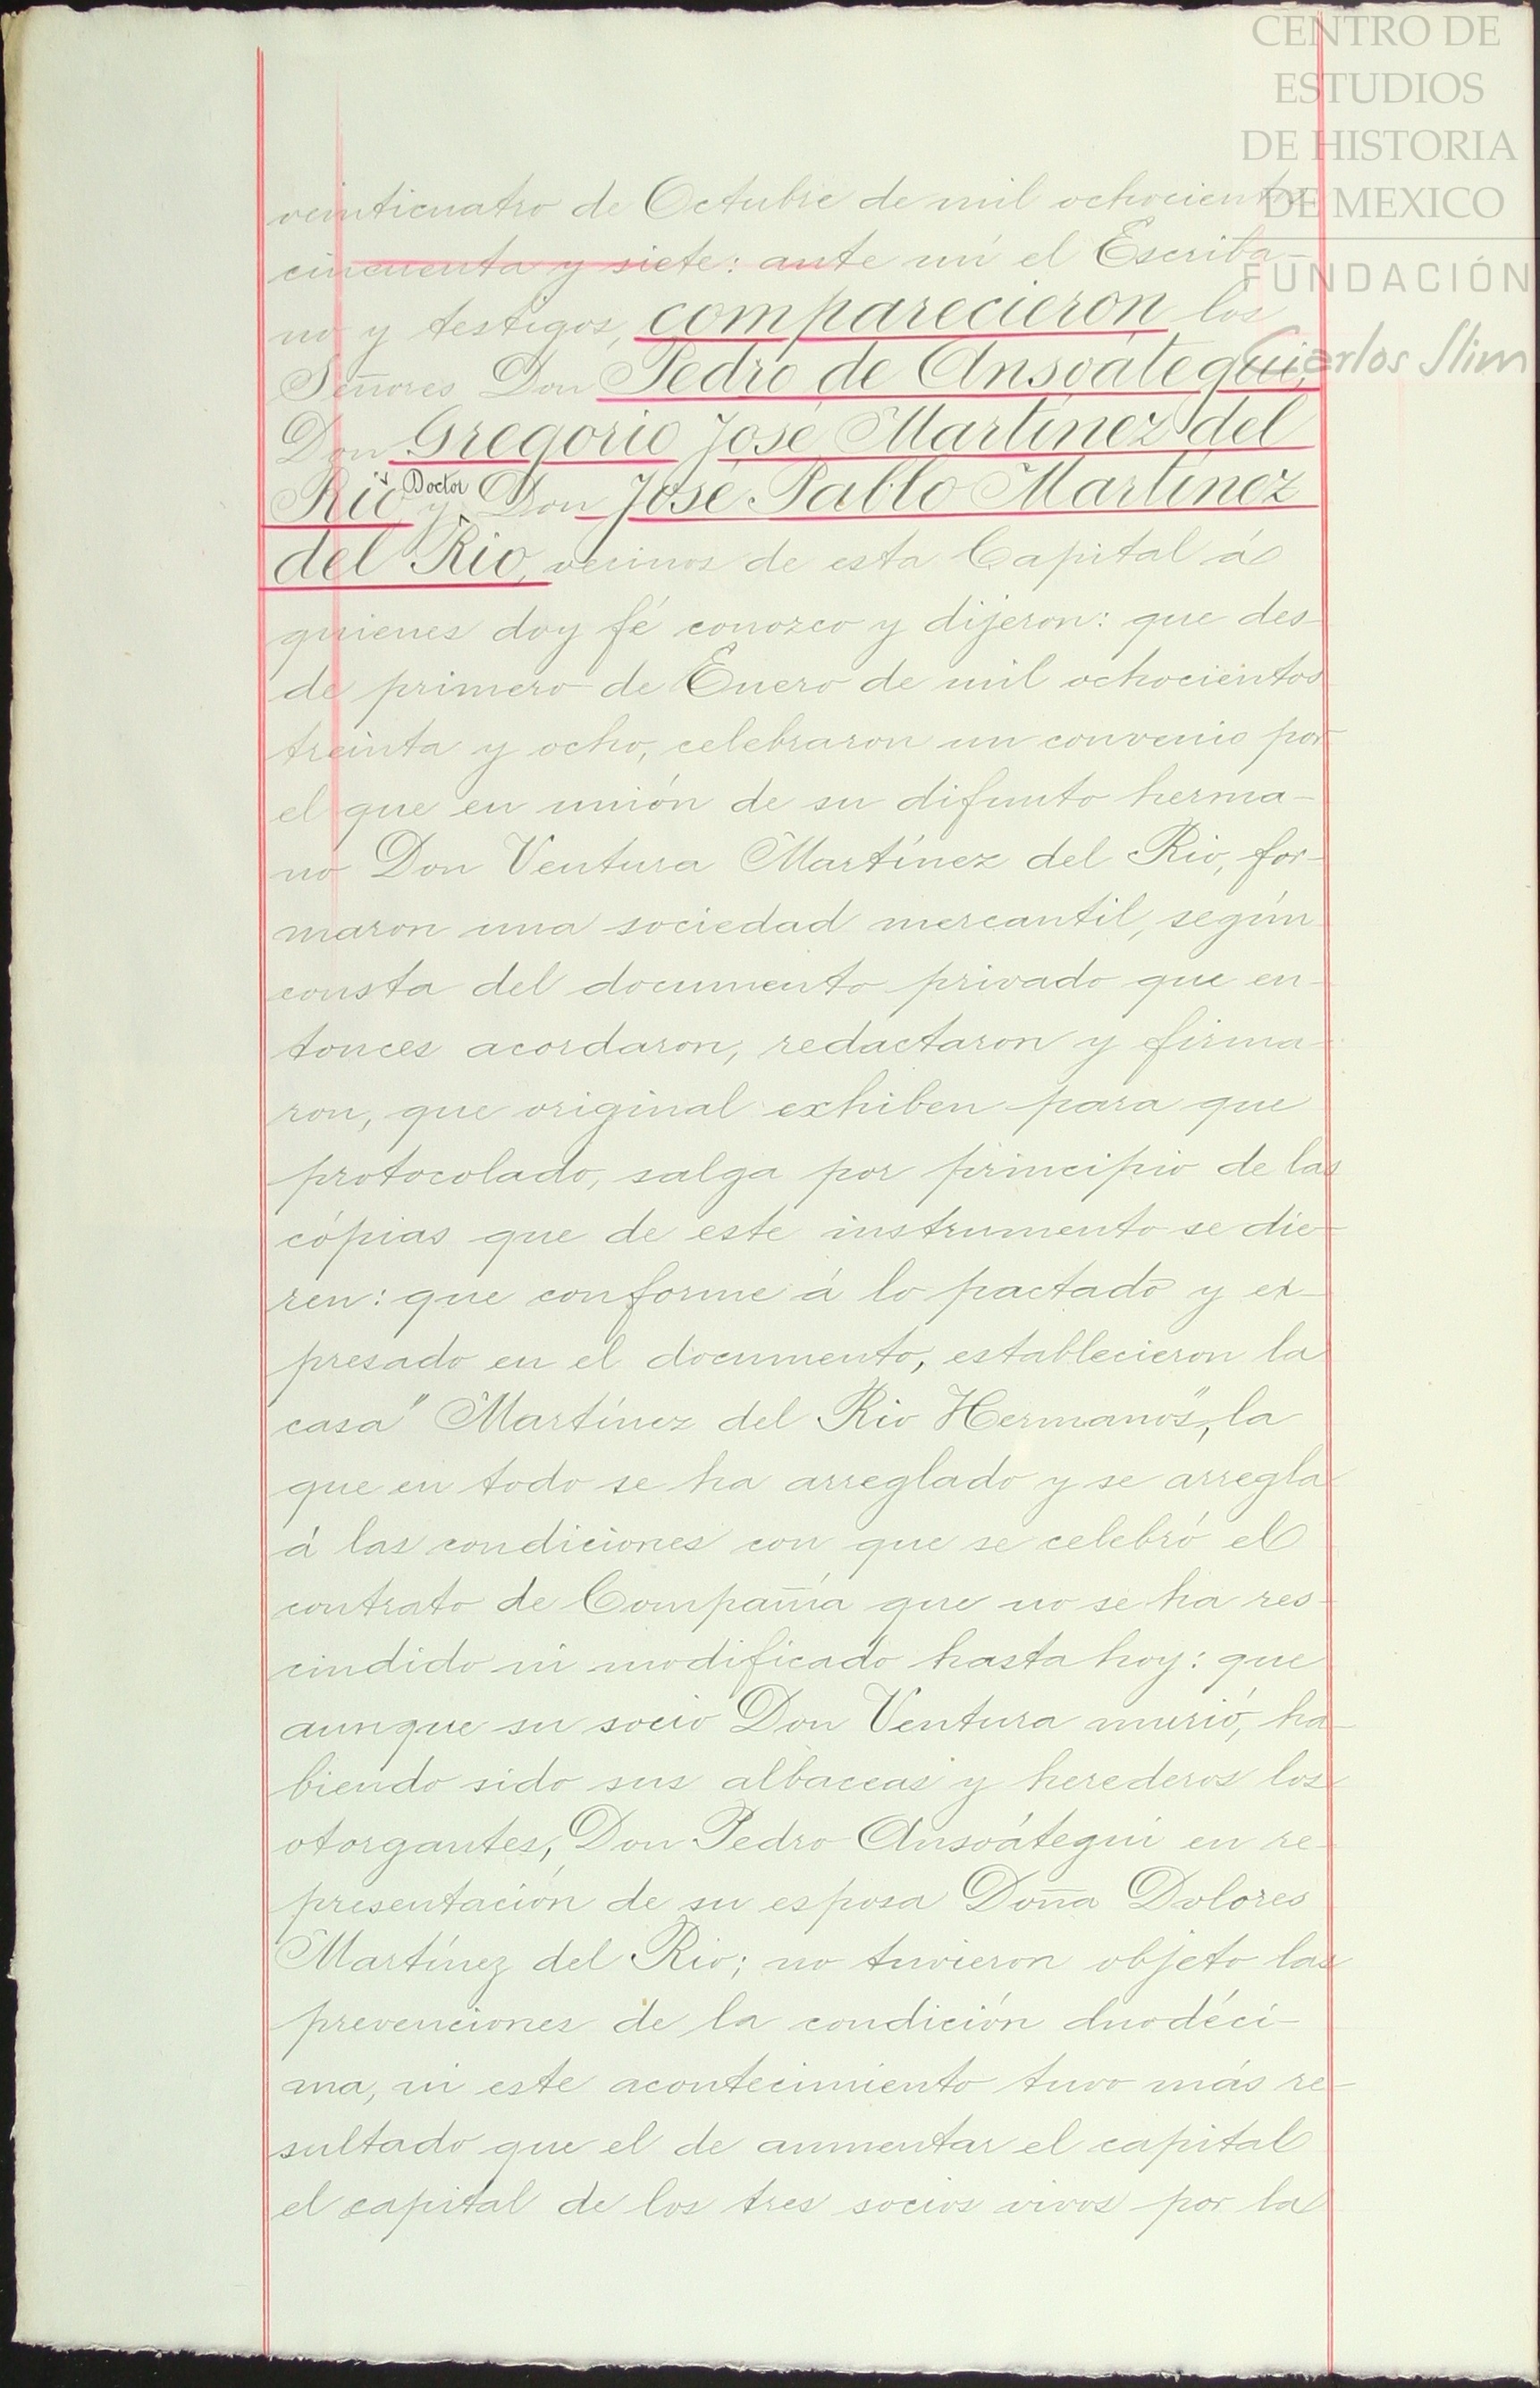 CENTRO DE
ESTUDIOS
DE HISTORIA
DE MEXICO
FUNDACIÓN
Carlos Slim
veinticuatro de Octubre de mil ochocientos
cincuenta y siete: ante mí el Escriba-
no y testigos, comparecieron los
Señores Don Pedro de Ansoátegui,
Don Gregorio José Martínez del
Rio y Doctor Don José Pablo Martínez
del Rio, vecinos de esta Capital á
quienes doy fé conozco y dijeron: que des-
de primero de Enero de mil ochocientos
treinta y ocho, celebraron un convenio por
el que en unión de su difunto herma-
no Don Ventura Martínez del Rio, for-
maron una sociedad mercantil, según
consta del documento privado que en-
tonces acordaron, redactaron y firma-
ron, que original exhiben para que
protocolado, salga por principio de las
cópias que de este instrumento se die-
ren: que conforme á lo pactado y ex-
presado en el documento, establecieron la
casa "Martínez del Rio Hermanos", la
que en todo se ha arreglado y se arregla
á las condiciones con que se celebró el
contrato de Compañía que no se ha res-
cindido ni modificado hasta hoy: que
aunque su socio Don Ventura murió, ha-
biendo sido sus albaceas y herederos los
otorgantes, Don Pedro Ansoátegui en re-
presentación de su esposa Doña Dolores
Martínez del Rio; no tuvieron objeto las
prevenciones de la condición duodéci-
ma, ni este acontecimiento tuvo más re-
sultado que el de aumentar el capital
el capital de los tres socios vivos por la